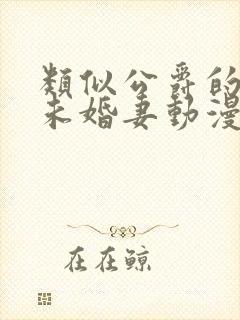 類似公爵的
未婚妻動漫
在在鯨